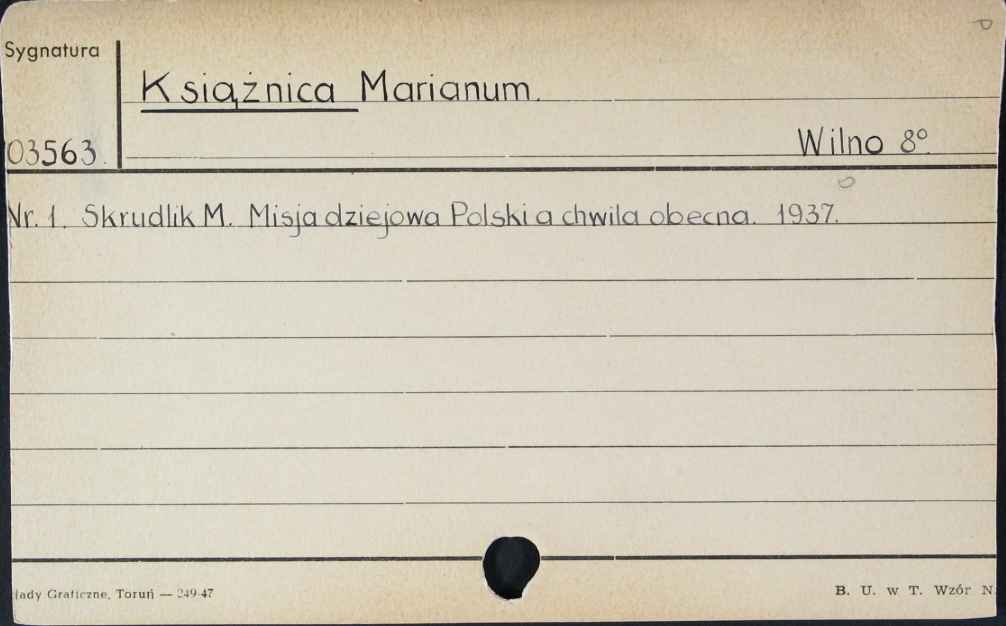 Sygnatura
Książnica Marianum.
03563.
Wilno 8°.
Nr. 1. Skrudlik M. Misja dziejowa Polski a chwila obecna. 1937.
łady Graficzne, Toruń — 249-47
B. U. w T. Wzór N